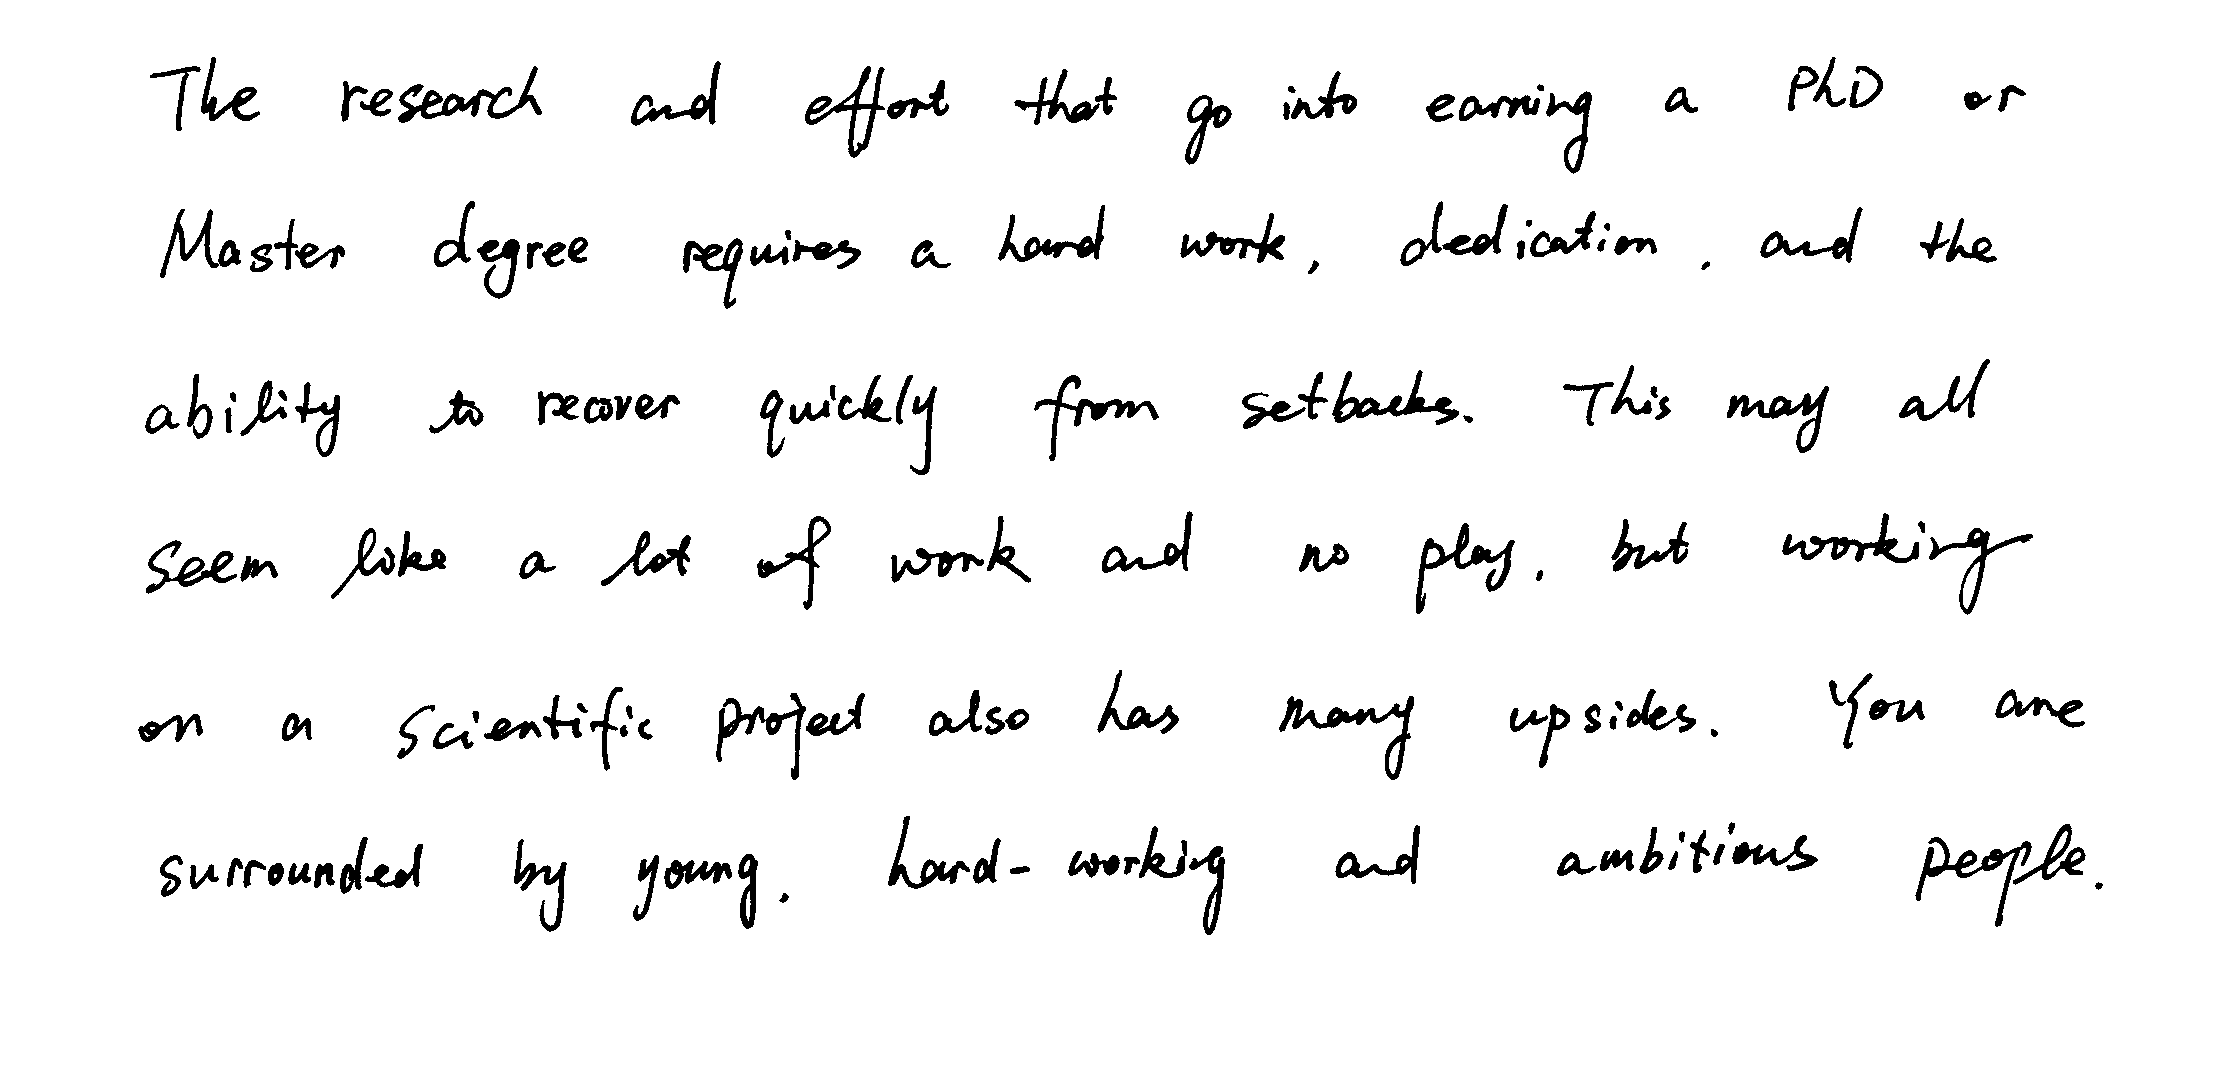 The research and effort that go into earning a PhD or
Master degree requires a hard work, dedication, and the
ability to recover quickly from setbacks. This may all
seem like a lot of work and no play, but working
on a scientific project also has many upsides. You are
surrounded by young, hard-working and ambitious people.